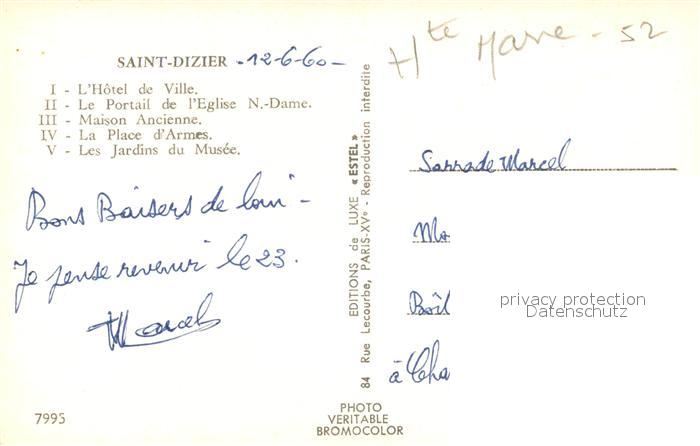 SAINT-DIZIER -12-6-60-
I - L'Hôtel de Ville.
II - Le Portail de l'Eglise N.-Dame.
III - Maison Ancienne.
IV - La Place d'Armes.
V - Les Jardins du Musée.
Bons Baisers de loin -
Je pense revenir le 23.
Marcel
7995
EDITIONS de LUXE « ESTEL »
84 Rue Lecourbe, PARIS-XVe - Reproduction interdite
PHOTO
VERITABLE
BROMOCOLOR
Hte Marne - 52
Marcel
Boîl
à Cha
privacy protection
Datenschutz